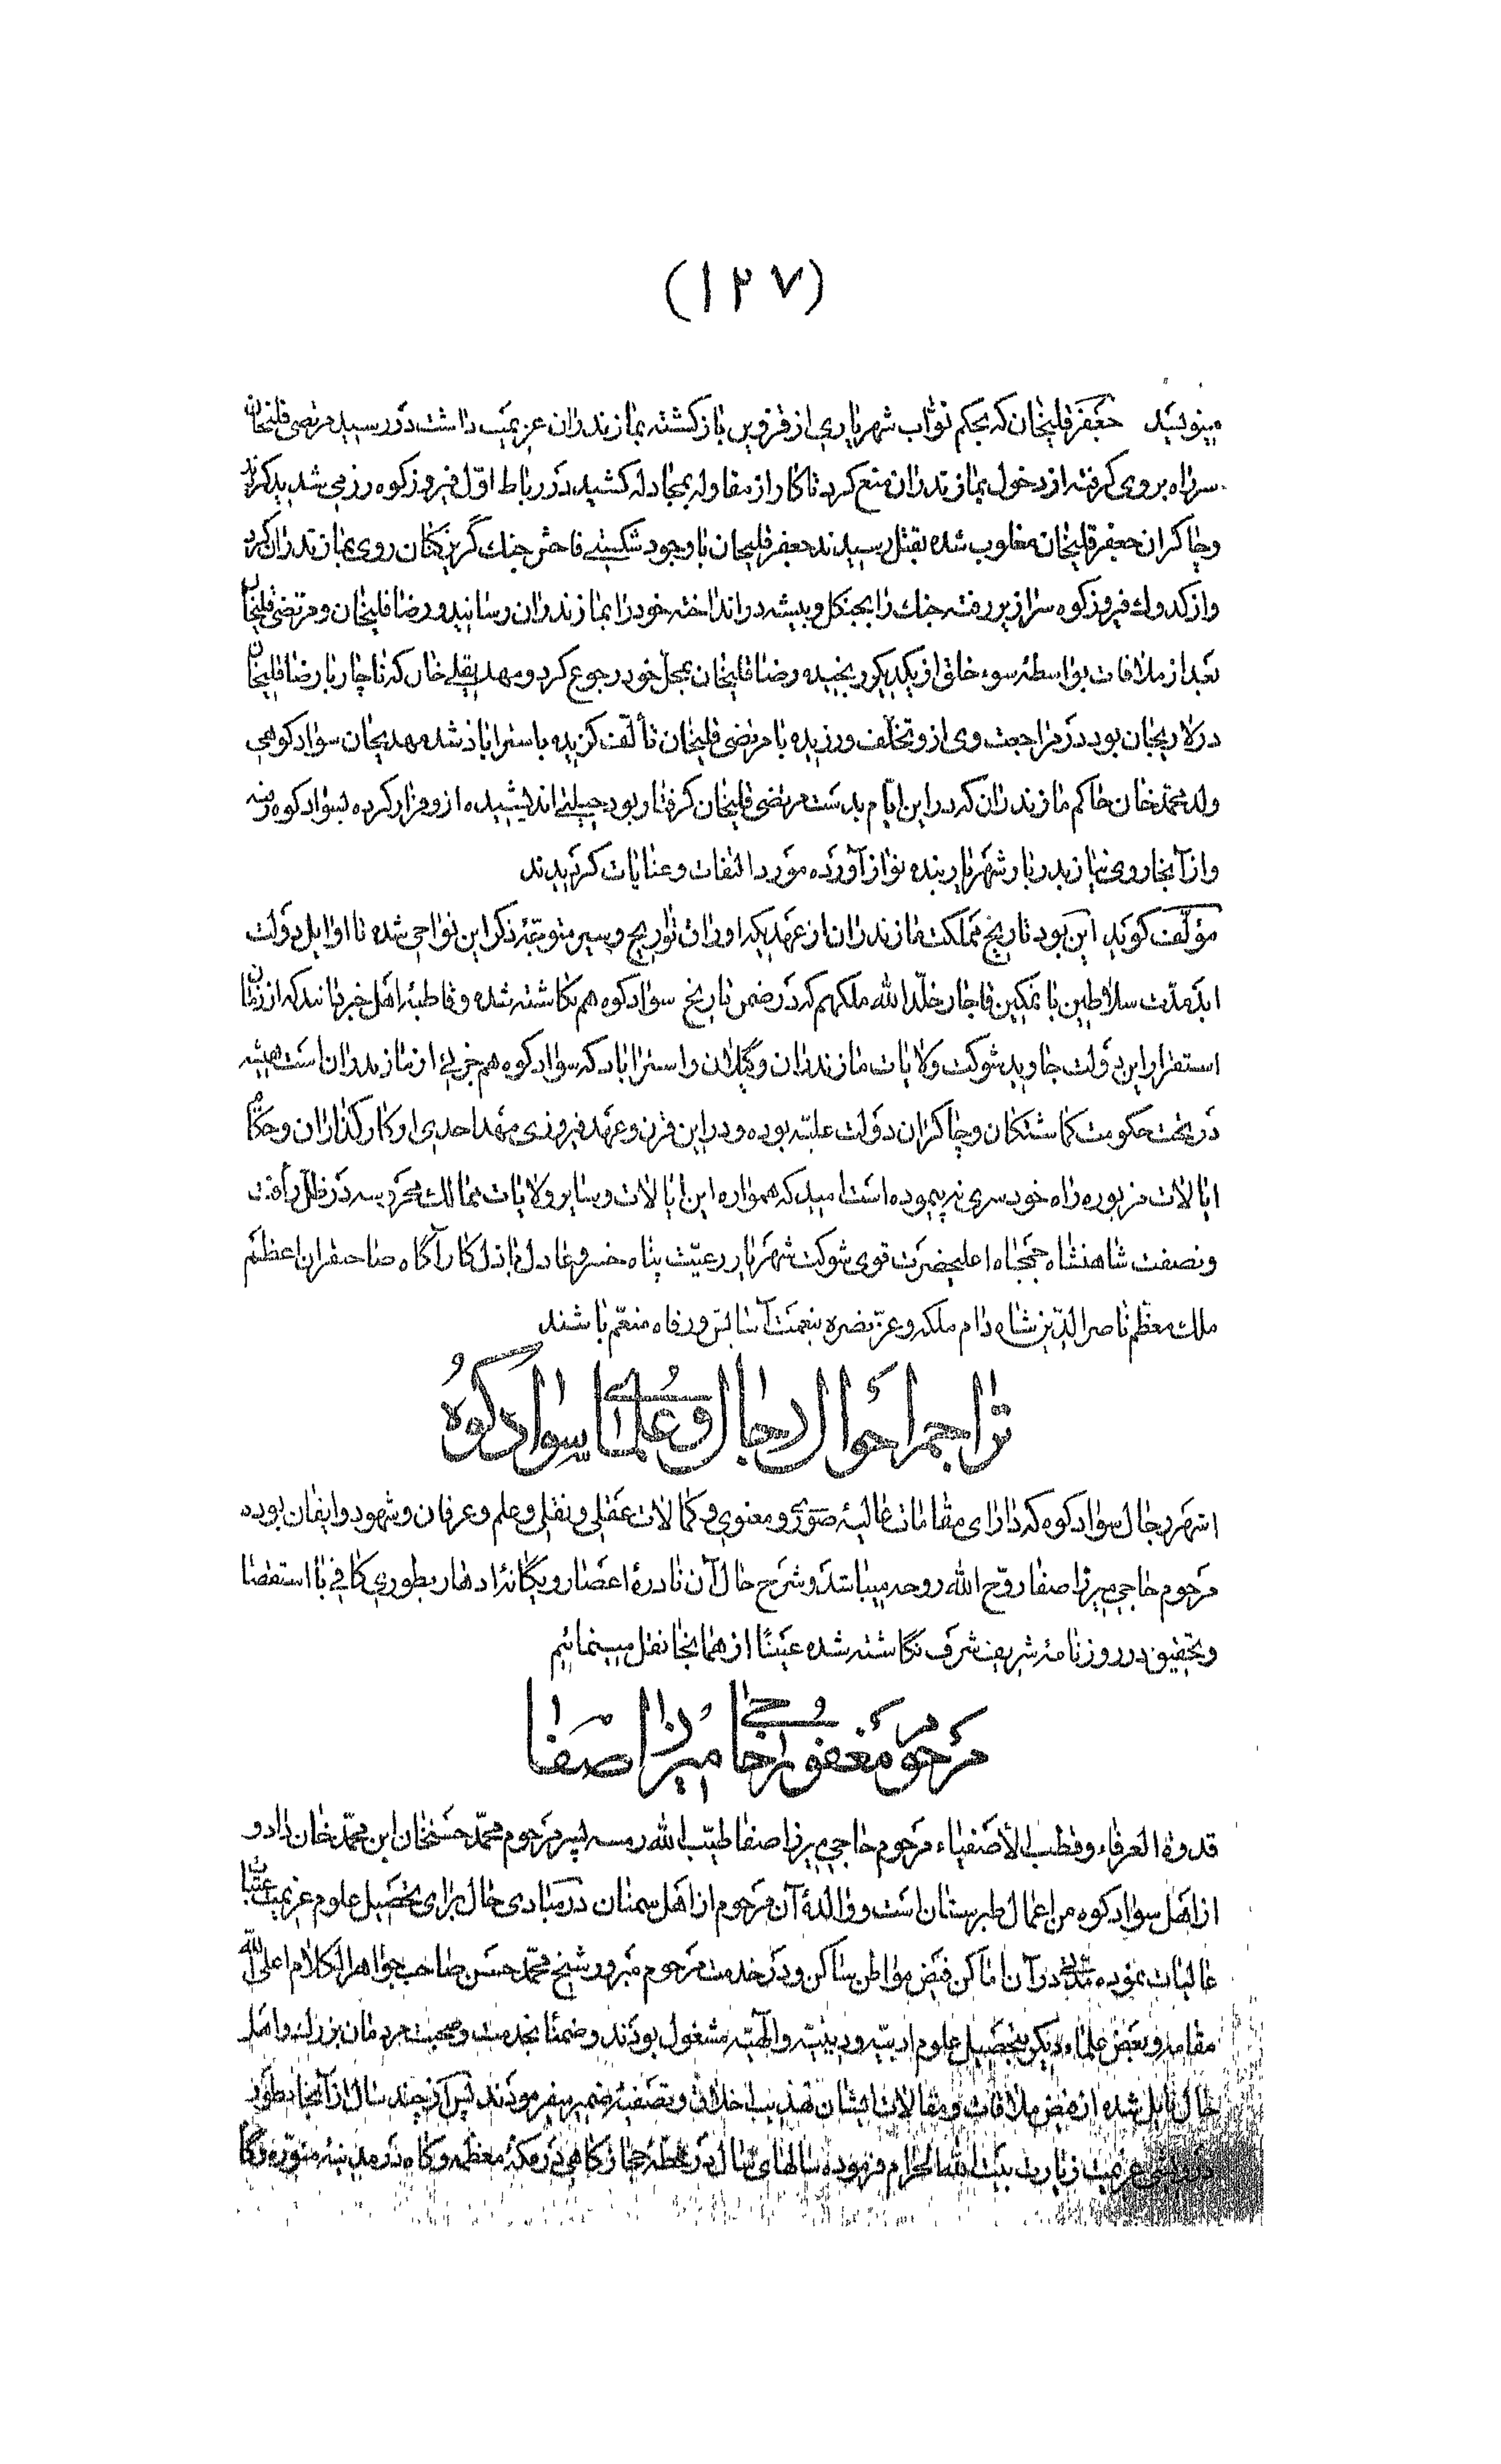 (۱۲۷)
مینویسد جعفرقلیخان که بحکم نوّاب شهریاری از قزوین بازکشته بمازندران عزیمت داشت در رسید مرتضی قلیخان
سر راه بر وی کرفته از دخول بمازندران منع کرد تا کار از مقاوله بمجادله کشید در رباط اوّل فیروزکوه رزمی شدید کردند
و چاکران جعفرقلیخان مغلوب شده بقتل رسیدند جعفرقلیخان با وجود شکستی فاحش جنك گریزکنان روی بمازندران کرد
و از کدوك فیروزکوه سرازیر رفته جنك را بجنکل و بیشه در انداخته خود را بمازندران رسانید و رضاقلیخان و مرتضی قلیخان
بعد از ملاقات بواسطهٔ سوء خلق از یکدیکر رنجیده رضاقلیخان بمحل خود رجوع کرد و مهدیقلی خان که ناچار با رضاقلیخان
در لاریجان بود در مراجعت وی از و تخلّف ورزیده با مرتضی قلیخان تألّف کزیده باستراباد شده مهدیخان سوادکوهی
ولد محمّدخان حاکم مازندران که در این ایّام بدست مرتضی قلیخان کرفتار بود حیلتی اندیشیده از و فرار کرده بسوادکوه رفته
و از آنجا روی نیاز بدربار شهریار بنده نواز آورده مورد التفات و عنایات کردیدند
مؤلّف کوید این بود تاریخ مملکت مازندران از عهدیکه اوراق تواریخ و سیر متوجّه ذکر این نواحی شده تا اوایل دولت
ابد مدّت سلاطین با تمکین قاجار خلّد الله ملکهم که در ضمن تاریخ سوادکوه هم نگاشته شده و قاطبهٔ اهل خبر دانند که از زمان
استقرار این دولت جاوید شوکت ولایات مازندران و گیلان و استراباد که سوادکوه هم جزئی از مازندران است همیشه
در تحت حکومت کماشتکان و چاکران دولت علیّه بوده و در این قرن و عهد فیروزی مهد احدی از کارگذاران و حکّام
ایالات مزبوره راه خودسری نه پیموده است امید که همواره این ایالات و سایر ولایات ممالك محروسه در ظلّ رأفت
و نصفت شاهنشاه جمجاه اعلیحضرت قوی شوکت شهریار رعیّت پناه خسرو عادل باذل کارآگاه صاحبقران اعظم
ملك معظّم ناصرالدّین شاه دام ملکه و عزّ نصره بنعمت آسایش و رفاه منعّم باشند
تراجم احوال رجال و علمای سوادکوه
اشهر رجال سوادکوه که دارای مقامات عالیهٔ صوری و معنوی و کمالات عقلی و نقلی و علم و عرفان و شهود و ایقان بوده
مرحوم حاجی میرزا صفا روّح الله روحه میباشد و شرح حال آن نادرهٔ اعصار و یگانهٔ ادهار بطوری کافی با استقصا
و تحقیق در روزنامهٔ شریفهٔ شرف نگاشته شده عیناً از همانجا نقل مینمائیم
مرحوم مغفور حاجی میرزا صفا
قدوة العرفاء و قطب الأصفیاء مرحوم حاجی میرزا صفا طیّب الله رمسه پسر مرحوم محمّد حسنخان ابن محمّدخان دادو
از اهل سوادکوه من اعمال طبرستان است و والدهٔ آن مرحوم از اهل سمنان در مبادی حال برای تحصیل علوم عزیمت عتبات
عالیات نموده مدّتی در آن اماکن فیض مواطن ساکن و در خدمت مرحوم مبرور شیخ محمّد حسن صاحب جواهرالکلام اعلی الله
مقامه و بعض علماء دیکر بتحصیل علوم ادبیّه و دینیّه و الهیّه مشغول بودند و ضمناً بخدمت و صحبت مردمان بزرك و اهل
حال نایل شده از فیض ملاقات و مقالات ایشان تهذیب اخلاق و تصفیهٔ ضمیر میفرمودند پس از چند سال از آنجا بطور
درویشی عزیمت زیارت بیت الله الحرام فرموده سالهای سال در خطهٔ حجاز کاهی در مکهٔ معظمه و کاه در مدینهٔ منوّره